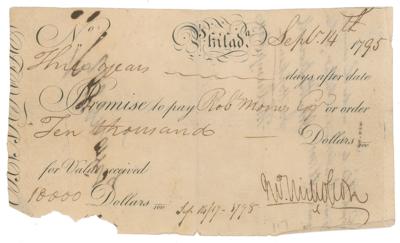 No. Philada. Sepr. 14th 1795
Three years days after date
Promise to pay Robt Morris Esqr or order
Ten thousand Dollars 100
for Value received
10000 Dollars 100 Sep. 14/17 - 1798 Jno. Nicholson